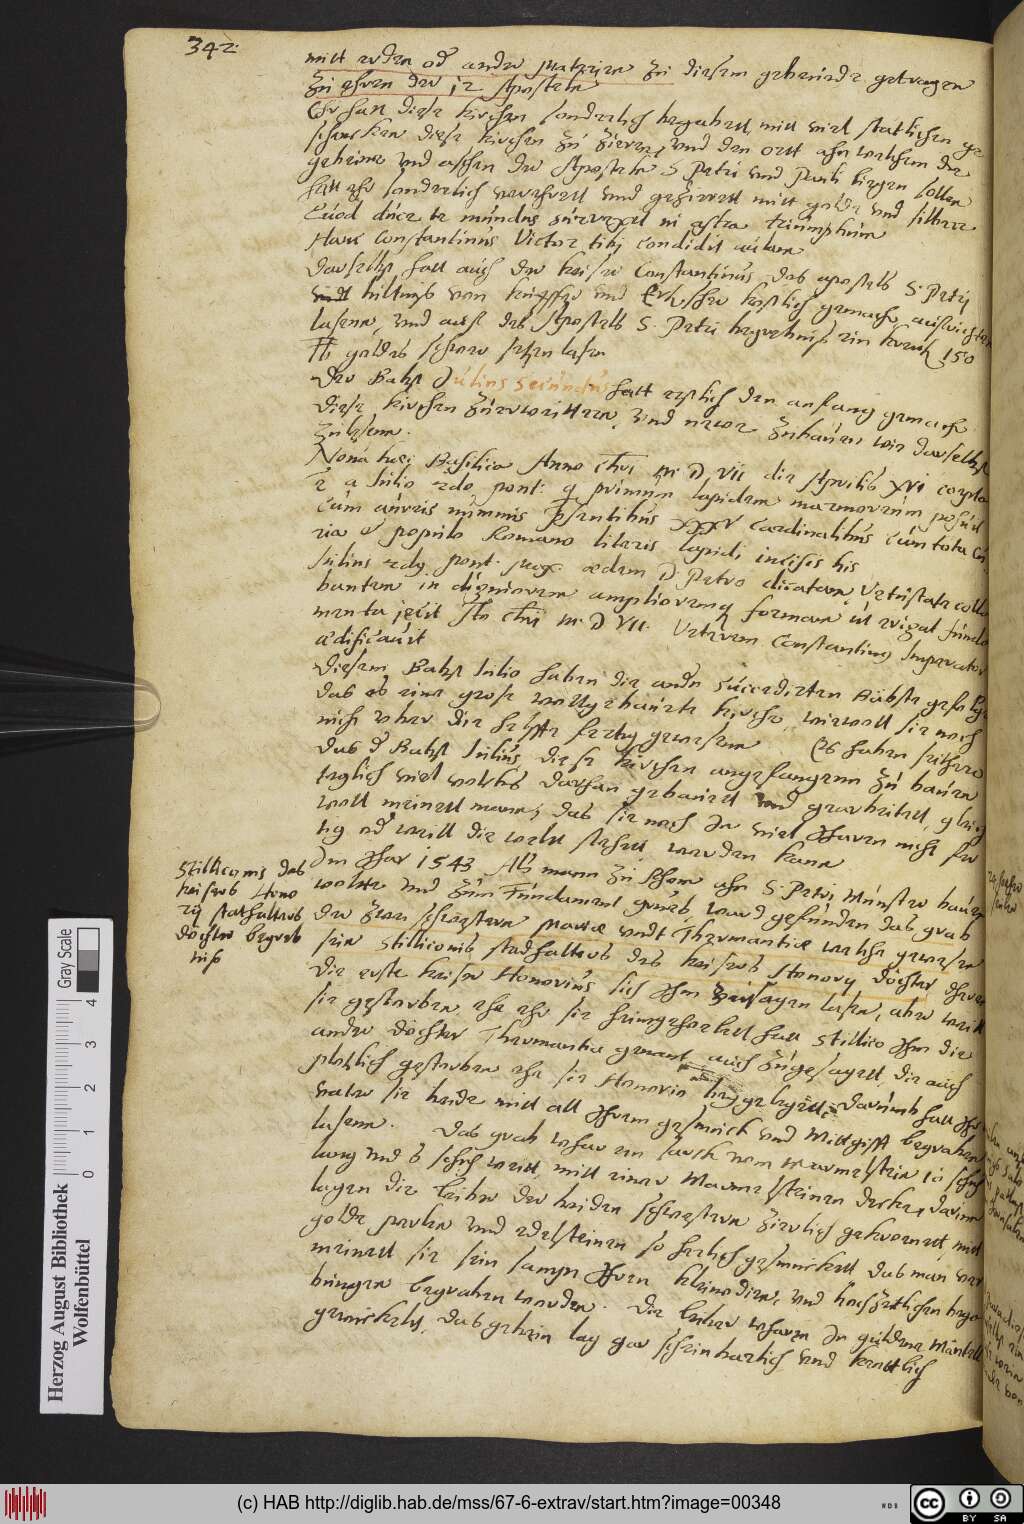 342.
mitt erden od ander materien zu diesem gebeude getragen
zu ehren der 12 Aposteln
Ehr hatt diese kirchen sonderlich begabett, mitt viel stattlichen ge
schencken diese kirchen zu zieren, und den ortt ahn welchem die
gebeine und aschen der Aposteln S Petri und Pauli liegen sollen
hatt ehr sonderlich verehrett und gezierett mitt golde und silber
Quod duce te mundus surrexit in astra triumphans
Hanc Constantinus Victor tibi condidit aulam
Daselbst hatt auch der keiser Constantinus des apostels S. Petri
bildtnis von kupffer und köstlich gemacht, auffrichten
lassen, und auff des Apostels S. Petri begrebnis ein Creutz 150
℔ goldes schwer setzen lassen
Der Babst Julius Secundus hatt erstlich den anfang gemacht
diese kirchen zu erweittern, und newe zu bauen, wie daselbst
zu lesenn.
Nona huic Basilicae Anno Chri M. D. VII die Aprilis XVI coepta
e a Iulio 2do pont: q primum lapidem marmoreum posuit
cum aureis nummis psentibus XXXV Cardinalibus cum tota cu
ria & populo Romano literis lapidi incisis his
Iulius 2dus pont. max. aedem D. Petro dicatam, vetustate colla
bantem in digniorem amplioremq formam ut erigat funda
menta jecit Ao Chri M. D. VII. Veterem Constantinus Imperator
aedificavit
Diesem Babst Iulio haben die andern succedierten Bäbste gefolget
das es eine grosse wollgebauete kirche, wiewoll sie noch
nicht uber die helffte fertig gewesenn Es haben seither
das d Babst Iulius, diese kirchen angefangenn zu bauen
teglich viel volckes daran gebauett und gearbeitett, gleich
woll meinett mann, das sie noch in viel Jharen nicht fer
tig od weill die weltt stehett werden kann
Im Jhar 1543 Als mann zu Rhom ahn S. Petri Münster bauen
wolte und zum Fundament grub, ward gefunden das grab
der zwei schwestern Mariae undt Thermantiae welche gewesen
sein Stilliconis stadthalters des keisers Honory döchter deren
die erste keiser Honorius sich Ihm zusagen lassen, aber weill
sie gestorben ehe ehr sie heimgeholett hatt Stillico Ihm die
ander döchter Thermantia genant auch zugesagett, die auch
plotzlich gestorben ehe sie Honorio beygelegett, darumb hatt Ihr
vater sie beide mitt all Ihrem geschmück und Mittgifft begraben
lassenn. Das grab wahr ein sarck von marmelstein 10 schuch
lang und 6 schuch weitt, mitt einer Marmelsteinen decken, darinne
lagen die leiber der beiden schwestern zierlich gekroenett, mitt
golde perlen und edelsteinen so herlich geschmückett das man ver
meinett sie sein sampt Ihren kleinodien, und hochzeitlichen
bringen begraben worden. Die leiber waren in güldene Mäntell
gewickelt, das gebein lag gar scheinbarlich und kentlich
Stilliconis des
keisers Hono
rij stathalters
döchter begreb
nis
Gray Scale
0 1 2 3 4
Herzog August Bibliothek
Wolfenbüttel
(c) HAB http://diglib.hab.de/mss/67-6-extrav/start.htm?image=00348
WDB
CC BY SA